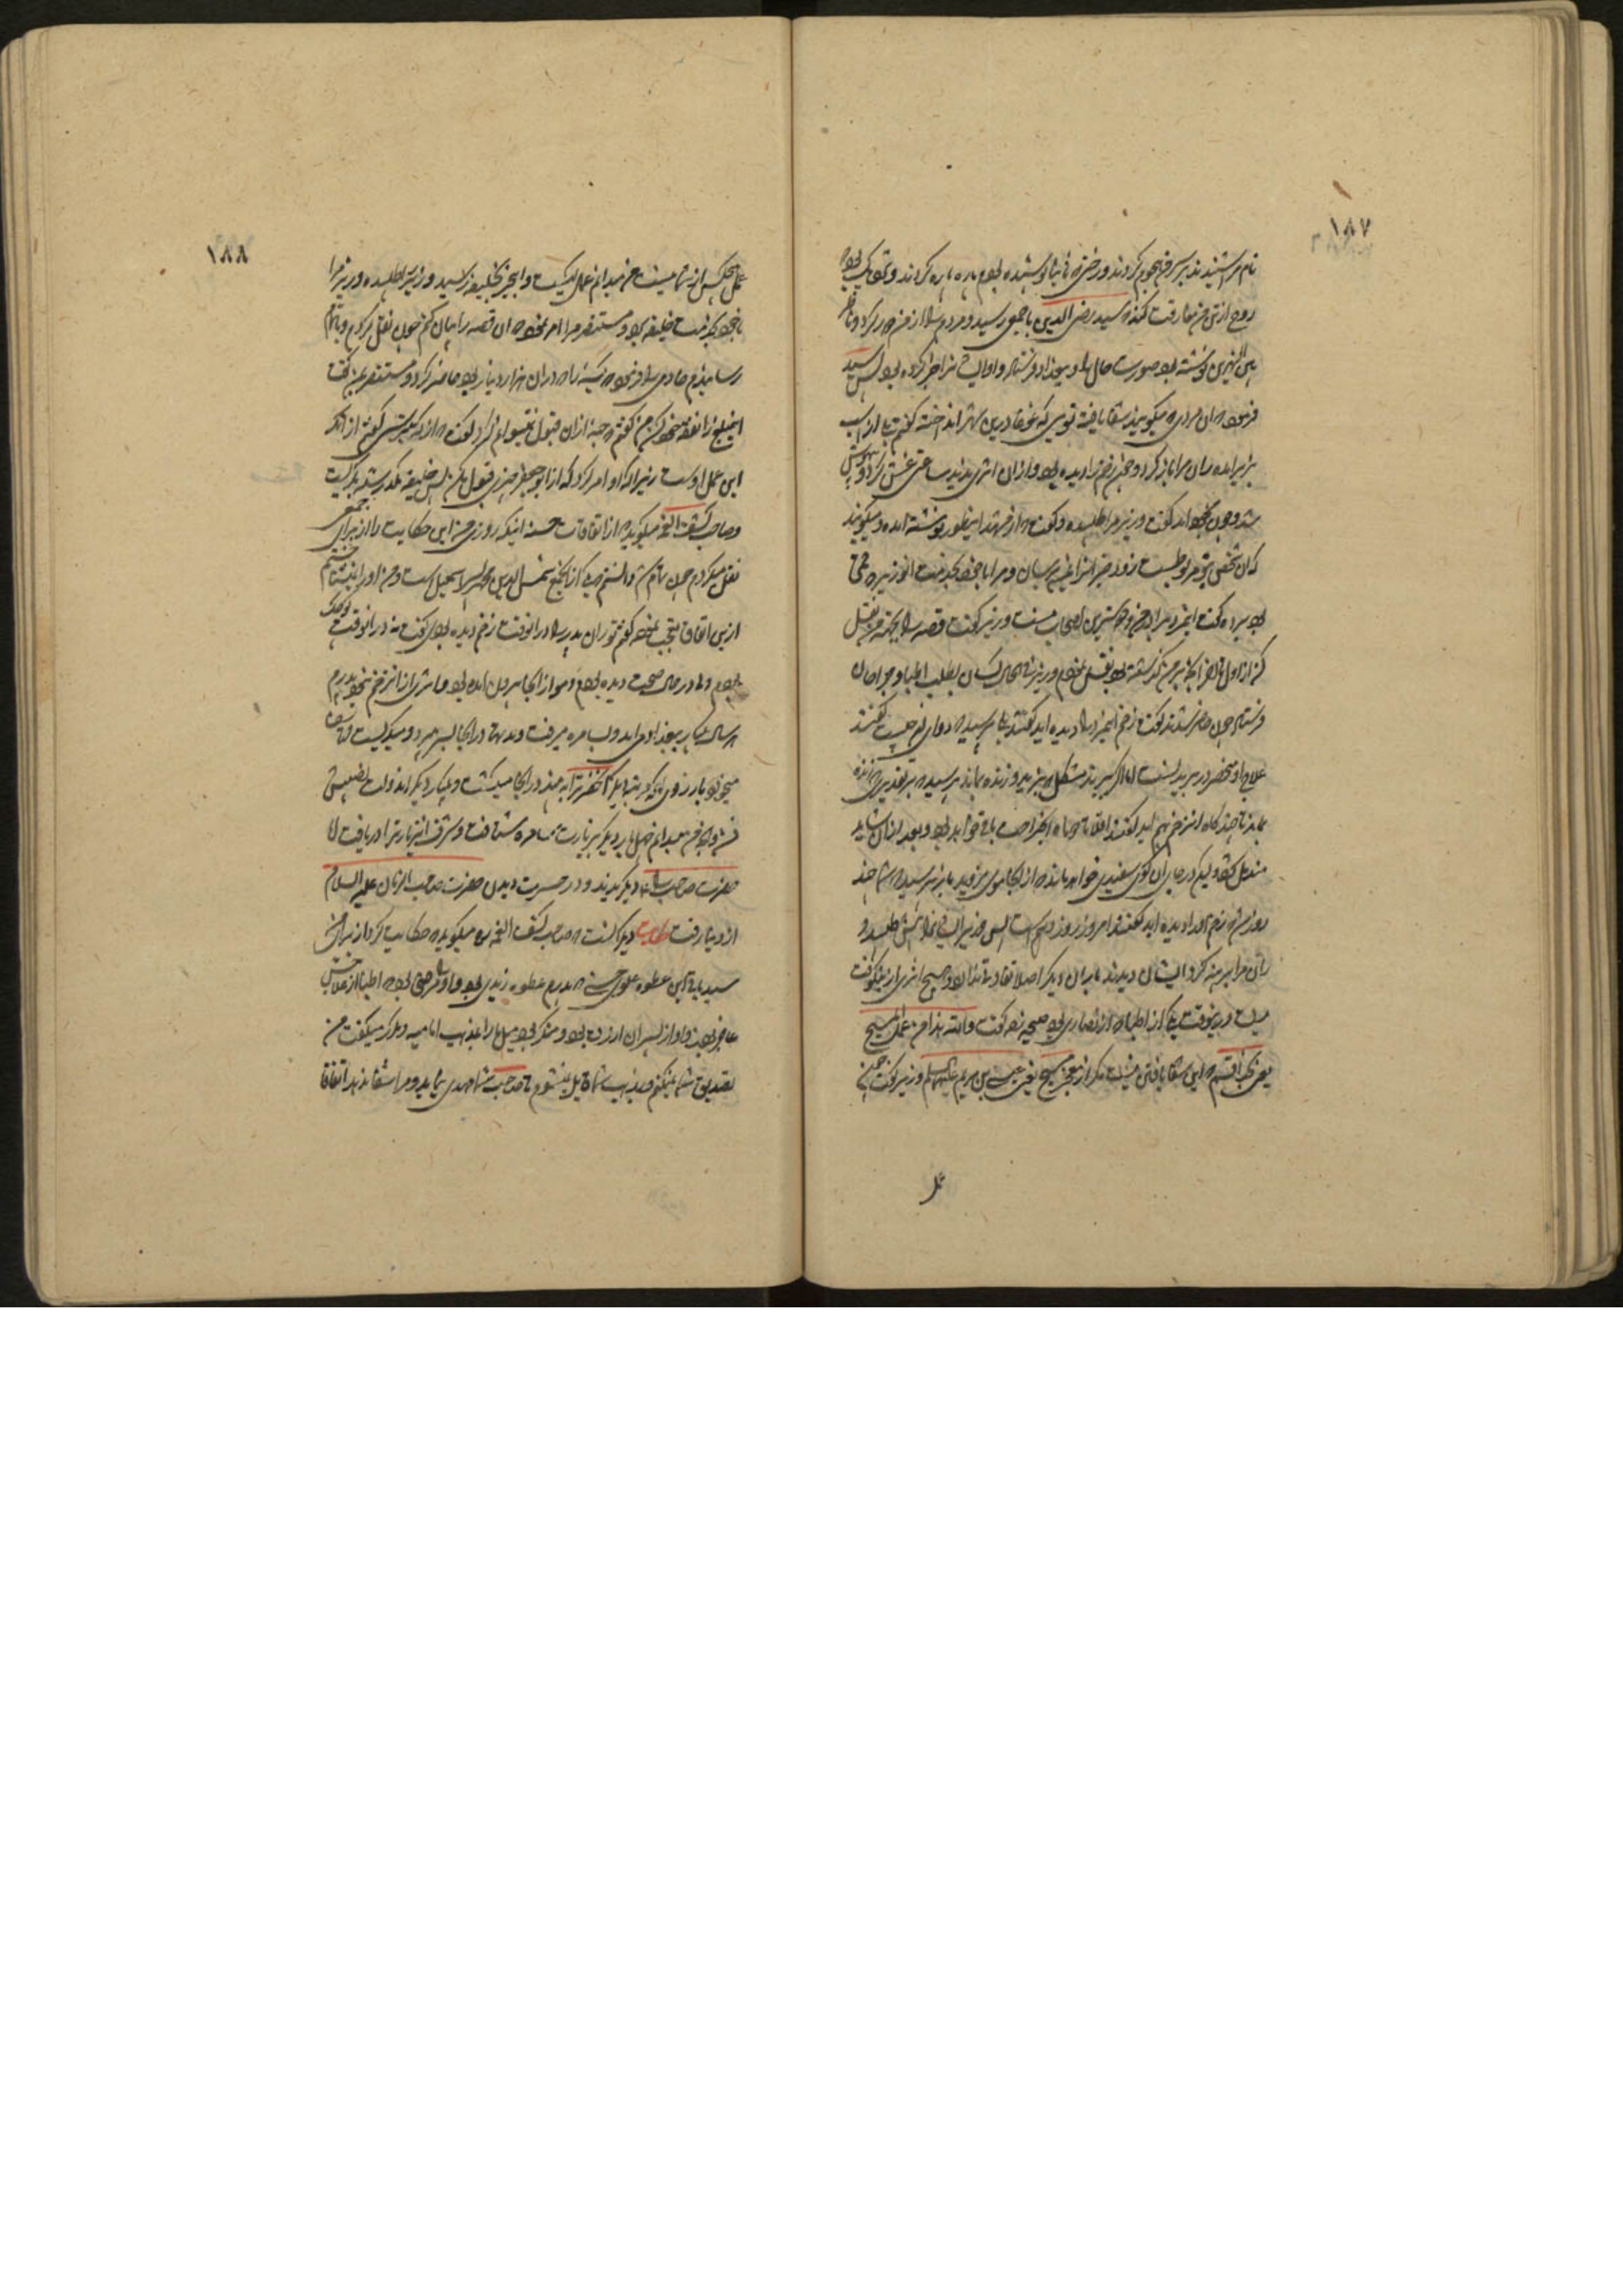 ۱۸۷
نام مرا شنیدند بر سر من هجوم کردند و رختی که ثانیا پوشیده بودم پاره پاره کردند و نزدیک بود که
روح از تن من مفارقت کند که سید رضی الدین با جمعی رسید و مردم را از من دور کرد و ناظر
بین النهرین نوشته بود صورت حال را و ببغداد فرستاده و ایشان را خبر کرده بود پس سید
فرمود که این مردی که میگویند شفا یافته تویی که غوغا در این شهر انداخته گفتم بلی از اسب
بزیر آمده ران مرا باز کرد و چون زخم را دیده بود و از آن اثری ندید ساعتی غش کرد و بیهوش
شد و چون بخود آمد گفت وزیر مرا طلبیده و گفته که از مشهد اینطور نوشته آمده و میگویند
که آن شخص بتو مربوط است زود خبر او را بمن برسان و مرا با خود بخدمت آن وزیر که قمی
بود برده گفت این مرد برادر من و دوسترین اصحاب منست وزیر گفت قصه را بجهة من نقل
کن از اول تا آخر آنچه بر من گذشته بود نقل نمودم وزیر فی الحال کسان بطلب اطبا و جراحان
فرستاد چون حاضر شدند گفت زخم این مرد را دیده اید گفتند بلی پرسید که دوای او چیست گفتند
علاج او منحصر در بریدنست اما اگر ببرند مشکل که بزید و زنده بماند پرسید که بر تقدیری که زنده
بماند تا چند گاه آن زخم بهم آید گفتند اقلا تا دو ماه آن جراحت باقی خواهد بود و بعد از آن شاید
مندمل شود ولیکن در جای آن گوی سفیدی خواهد ماند که از آنجا موی نروید باز پرسید که شما چند
روز شد که زخم او را دیده اید گفتند امروز روز دهم است پس وزیر ایشان را پیش طلبید و
ران مرا برهنه کرد ایشان دیدند که با ران دیگر اصلا تفاوتی ندارد و هیچ اثری از آن نیست
درینوقت یکی از اطبا که از نصاری بود صیحه زد گفت والله هذا من عمل المسیح
یعنی بخدا قسم که این شفا یافتن نیست مگر از معجز مسیح یعنی عیسی بن مریم علیهما السلام وزیر گفت چون
عمل
۱۸۸
عمل هیچکس از شما نیست من میدانم عمل کیست و این خبر بخلیفه رسید وزیر را طلبید وزیر مرا
با خود بخدمت خلیفه برد و مستنصر مرا امر نمود که آن قصه را بیان کنم چون نقل کردم و باتمام
رسانیدم خادمی را فرمود که کیسه را که در آن هزار دینار بود حاضر کرد و مستنصر بمن گفت
این مبلغ را نفقه خود کن من گفتم حبه از آن قبول نمیتوانم کرد گفت از که میترسی گفتم از آنکه
این عمل اوست زیرا که او امر کرد که از ابو جعفر چیزی قبول مکن پس خلیفه مکدر شد و بگریست
و صاحب کشف الغمه میگوید که از اتفاقات حسنه اینکه روزی من این حکایت را از برای جمعی
نقل میکردم چون تمام شد دانستم که یکی از آن جمع شمس الدین محمد پسر اسمعیل است و من او را نمیشناختم
از این اتفاق تعجب نموده گفتم تو ران پدر را در آنوقت زخم دیده بودی گفت نه در آنوقت کوچک
بودم ولی در حال صحت دیده بودم و مو از آنجا بیرون آمده بود و اثری از آن زخم نبود و پدرم
هر سال یکبار ببغداد می آمد و بسامره میرفت و مدتها در آنجا بسر میبرد و میگریست و تاسف
میخورد بارزوی آنکه یکمرتبه دیگر آنحضرت را به بیند در آنجا میگشت و یکبار دیگر آن دولت نصیبش
نشد و آنچه من میدانم چهل بار دیگر بزیارت سامره شتافت و شرف آن زیارت را دریافت اما
حضرت صاحب را دیگر ندید و در حسرت دیدن حضرت صاحب الزمان علیه السلام
از دنیا رفت حکایت دیگر آنست که صاحب کشف الغمه ره میگوید که حکایت کرد از برای من
سید باقی ابن عطوه علوی حسنی که پدرم عطوه زیدی بود و او را مرضی بود که اطبا از علاجش
عاجز بودند و او از پسران آزرده بود و منکر بود میل ما را بمذهب امامیه و مکرر میگفت من
تصدیق شما نمیکنم و بمذهب شما قایل نمیشوم تا صاحب شما مهدی بیاید و مرا شفا ندهد اتفاقا